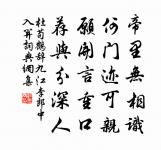 帝里無相識
何門迹可親
願開言重口
荐與分深人
杜荀鶴辭九江李郎中
入關詞典網集